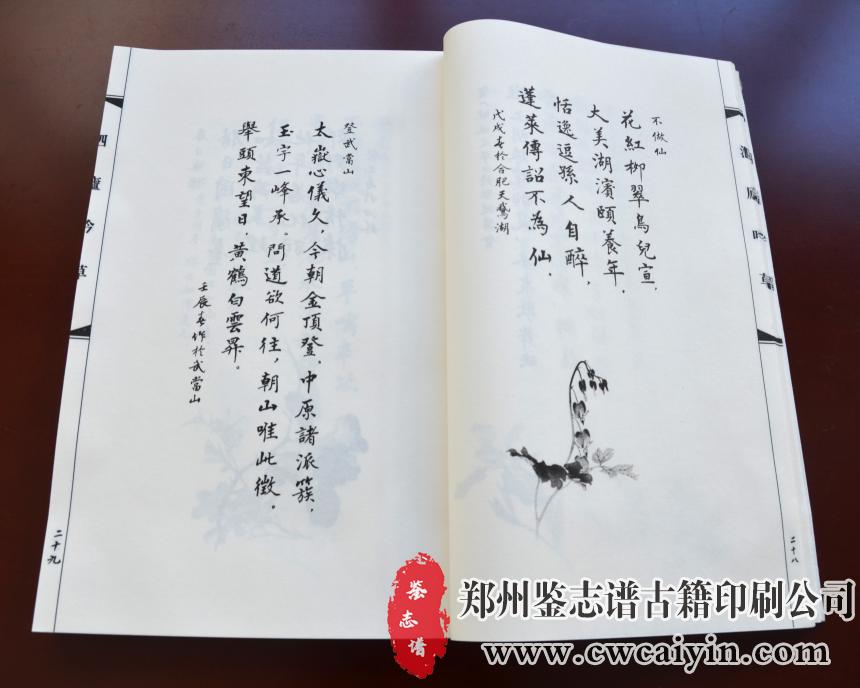 不做仙
花紅柳翠鳥兒宣，
大美湖濱頤養年，
恬逸逗孫人自醉，
蓬萊傳詔不為仙，
戊戌春於合肥天鵝湖
二十八
登武當山
太嶽心儀久，今朝金頂登，中原諸派簇，
玉宇一峰承。問道欲何往，朝山唯此徵。
舉頭東望日，黃鶴白雲昇。
壬辰春作於武當山
二十九
鉴志谱
郑州鉴志谱古籍印刷公司
www.cwcaiyin.com